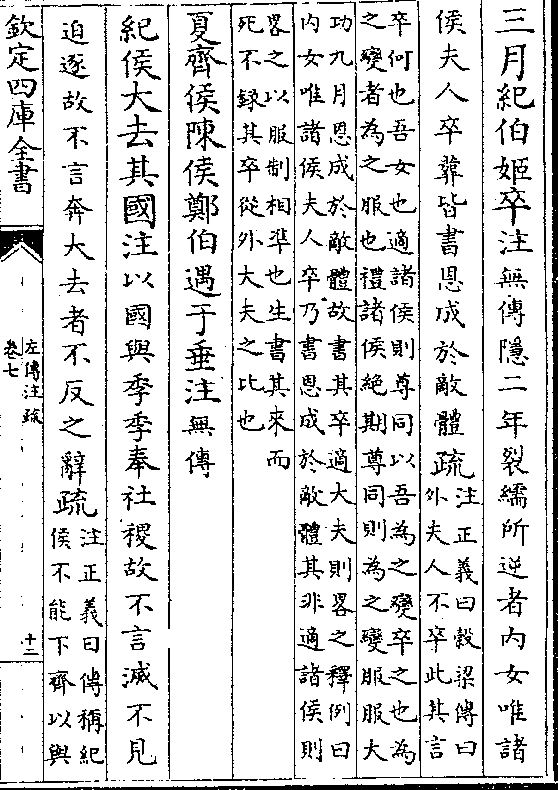 三月紀伯姬卒注無傳隱二年裂繻所逆者內女唯諸
侯夫人卒葬皆書恩成於敵體疏注正義曰穀梁傳曰
外夫人不卒此其言
卒何也吾女也適諸侯則尊同以吾為之變卒之也為
之變者為之服也禮諸侯絶期尊同則為之變服服大
功九月恩成於敵體故書其卒適大夫則畧之釋例曰
內女唯諸侯夫人卒乃書恩成於敵體其非適諸侯則
畧之以服制相準也生書其來而
死不録其卒從外大夫之比也
夏齊侯陳侯鄭伯遇于垂注無傳
紀侯大去其國注以國與季季奉社稷故不言滅不見
迫逐故不言奔大去者不反之辭疏注正義曰傳稱紀
侯不能下齊以與
欽定四庫全書
左傳注疏
卷七
十二